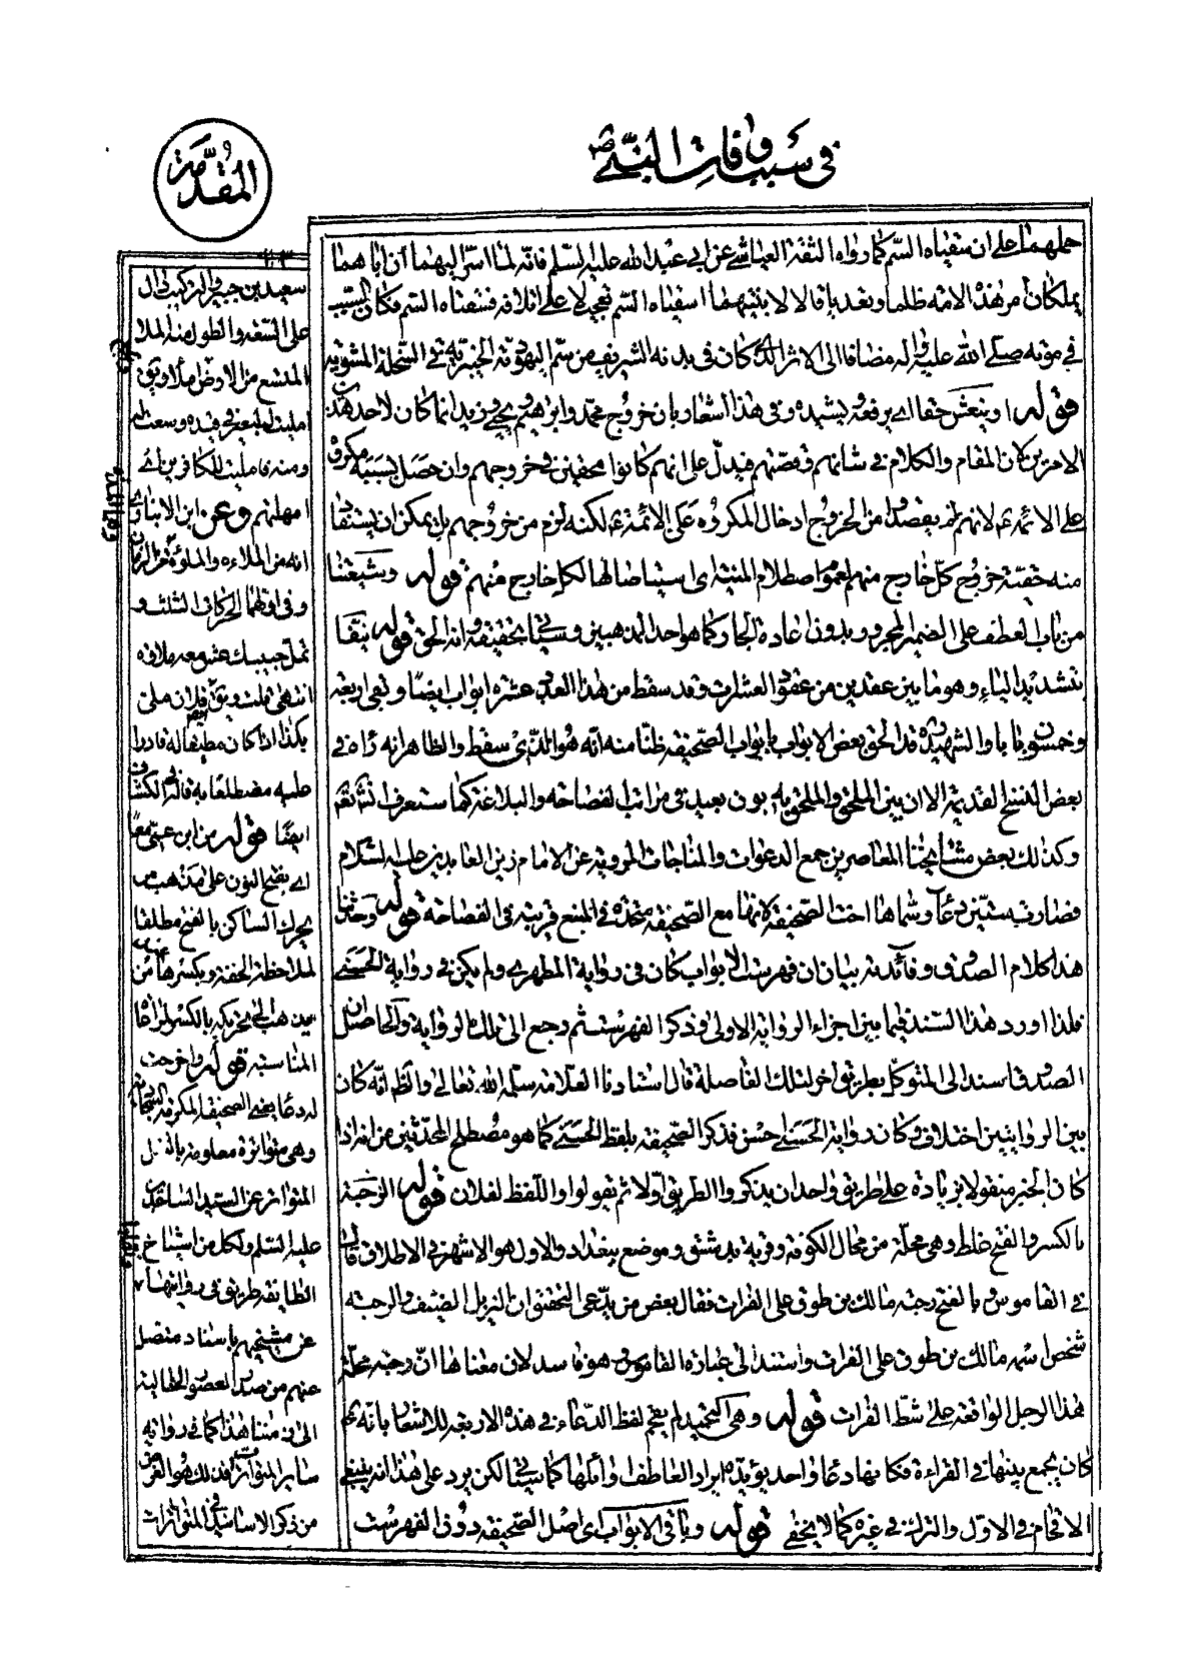 في سبب وفات النبي ص
المقدمة
حملهما على ان سقياه السم كما رواه الثقة العياشي عن ابي عبد الله عليه السلم فانه لما اسر اليهما أن اباهما
يملكان من هذه الامه ظلما وبعد يا قالا لابنتيهما اسقياه السم تعجيلا على اتلافه فسقتاه السم فكان السبب
في موته صلى الله عليه واله مضافا الى الاثر الذي كان في بدنه الشريف من سم اليهودية الخيبرية في السخلة المشوية
قوله او ينعش حقا اي يرفعه ويشيده وفي هذا اشعار بان خروج محمد وابراهيم ويحيى وزيد انما كان لاحد هذين
الامرين لان المقام والكلام في شانهم وقصتهم فيدل على انهم كانوا محقين في خروجهم وان حصل بسببه مكروه
على الائمة ع لانهم لم يقصدوا من الخروج ادخال المكروه على الائمة ع لكنه لزم من خروجهم بل يمكن ان يستفاد
منه حقية خروج كل خارج منهم لعموم اصطلام المنية اي استيصالها لكل خارج منهم قوله وشيعتنا
من باب العطف على الضمير المجرور بدون اعادة الجار كما هو احد المذهبين وسياتي تحقيقه وانه الحق قوله نيفا
بتشديد الياء وهو ما بين عقدين من عقود العشرات وقد سقط من هذا العدد عشرة ابواب ايضا وبقي اربعة
وخمسون بابا والشهيد ره قد الحق بعض الابواب بابواب الصحيفة ظنا منه انه هو الذي سقط والظاهر انه راه في
بعض النسخ القديمة الا ان بين الملحق والملحق به بون بعيد في مراتب الفصاحة والبلاغة كما ستعرف انش تعم
وكذلك بعض مشايخنا المعاصرين جمع الدعوات والمناجات المروية عن الامام زين العابدين عليه السلام
فصارت ستين دعاء وسماها اخت الصحيفة لانها مع الصحيفة متحدة في المنبع قريبة في الفصاحة قوله وحدثنا
هذا كلام الصدوق وفائدته بيان ان فهرست الابواب كان في رواية المطهري ولم يكن في رواية الحسني
فلذا اورد هذا السند فيما بين اجزاء الرواية الاولى وذكر الفهرست ثم رجع الى تلك الرواية والحاصل ان
الصدوق اسند الى المتوكل بطريق اخر لتلك الفاصلة قال استادنا العلامة سلمه الله تعالى والظ انه كان
بين الروايتين اختلاف وكان رواية الحسني احسن فذكر الصحيفة بلفظ الحسني كما هو مصطلح المحدثين من انه اذا
كان الخبر منقولا بزيادة على طريق واحد ان يذكروا الطريق اولا ثم يقولوا واللفظ لفلان قوله الرحبة
بالكسر والفتح غلط وهي محلة من محال الكوفة وقرية بدمشق وموضع ببغداد والاول هو الاشهر في الاطلاق قال
في القاموس وبالفتح رحبة مالك بن طوق على الفرات فقال بعض من يدعي التحقق ان النزيل الضيف والرحبة
شخص اسمه مالك بن طوق على الفرات واستند الى عبارة القاموس وهو فاسد لان معناها ان رحبة محلة
لهذا الرجل الواقعة على شط الفرات قوله وهي التحميد لم يقحم لفظ الدعاء في هذه الاربعة للاشعار بانه ع
كان يجمع بينها في القراءة فكانها دعاء واحد يؤيده ايراد العاطف اوائلها كما سياتي لكن يرد على هذا انه ينبغي
الاقحام في الاول والترك في غيره كما لا يخفى قوله وباقي الابواب اي اصل الصحيفة دون الفهرست
سعيد بن جبير والتركيب دال
على السعة والطول منه الملا
المتسع من الارض ملا ويق
امليت للبعير في قيده وسعت له
ومنه فامليت للكافرين اي
امهلتهم وعن ابن الانباري
انه من الملاءة والملوة من الزمان
وفي اولهما الحركات الثلث و
تمل حبيبك عش معه ملاوة
انتهى قلت ويق فلان ملى
بكذا اذا كان مطيقا له قادرا
عليه مضطلعا به قاله في الكشاف
ايضا قوله من ابن عمي معا
اي بفتح النون على مذهب من
يحرك الساكن بالفتح مطلقا
لملاحظة الخفة وبكسرها من
يذهب الى تحريكه بالكسر مراعا
المناسبة قوله واخرجت
له دعا يعني الصحيفة المكرمة السجادية
وهي متواترة معلومة بالنقل
المتواتر عن السيد الساجدين
عليه السلم ولكل من اشياخ
الطايفة طريق في روايتها
عن مشيختهم باسناد متصل
عنهم من صدر العصور الخالية
الى زمننا هذا كما في رواية
ساير المتواترات فذلك هو الغرض
من ذكر الاسانيد في المتواترات